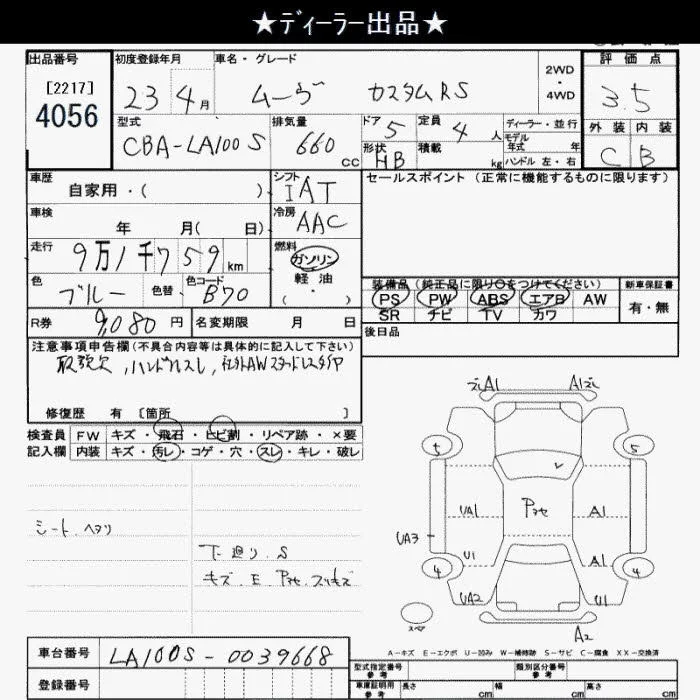 ★ディーラー出品★
出品番号
[2217]
4056
初度登録年月
23 4月
車名・グレード
ムーヴ カスタムRS
2WD
・
4WD
評価点
3.5
外装 内装
C B
型式
CBA-LA100S
排気量
660 cc
ドア 5
定員 4 人
形状 HB
積載 kg
ディーラー・並行
モデル年式 年
ハンドル 左・右
車歴
自家用・( )
シフト
IAT
セールスポイント (正常に機能するものに限ります)
車検
年 月( 日)
冷房
AAC
走行
9万1千759km
燃料
ガソリン
軽油
( ・ )
色
ブルー
色替
色コード
B70
装備品 (純正品に限り○をつけてください)
新車保証書
PS PW ABS エアB AW
有・無
SR ナビ TV カワ
R券
9,080円
名変期限 月 日
後日品
注意事項申告欄(不具合内容等は具体的に記入して下さい)
取説欠,ハンドルスレ,社外AWスタッドレスタイヤ
修復歴 有 [箇所 ]
検査員
記入欄
FW キズ・飛石・ヒビ割・リペア跡・×要
内装 キズ・汚レ・コゲ・穴・スレ・キレ・破レ
シート.ヘタリ
下廻り.S
キズ.E
A1 A1
5 5
Pアセ
UA1 A1
UA3
U1 A1
4 4
UA2 U1
スペア
A2
A−キズ E−エクボ U−凹み W−補修跡 S−サビ C−腐食 XX−交換済
車台番号
LA100S-0039668
登録番号
型式指定番号
参考
類別区分番号
参考
車庫証明用
参考
長さ cm
幅 cm
高さ cm